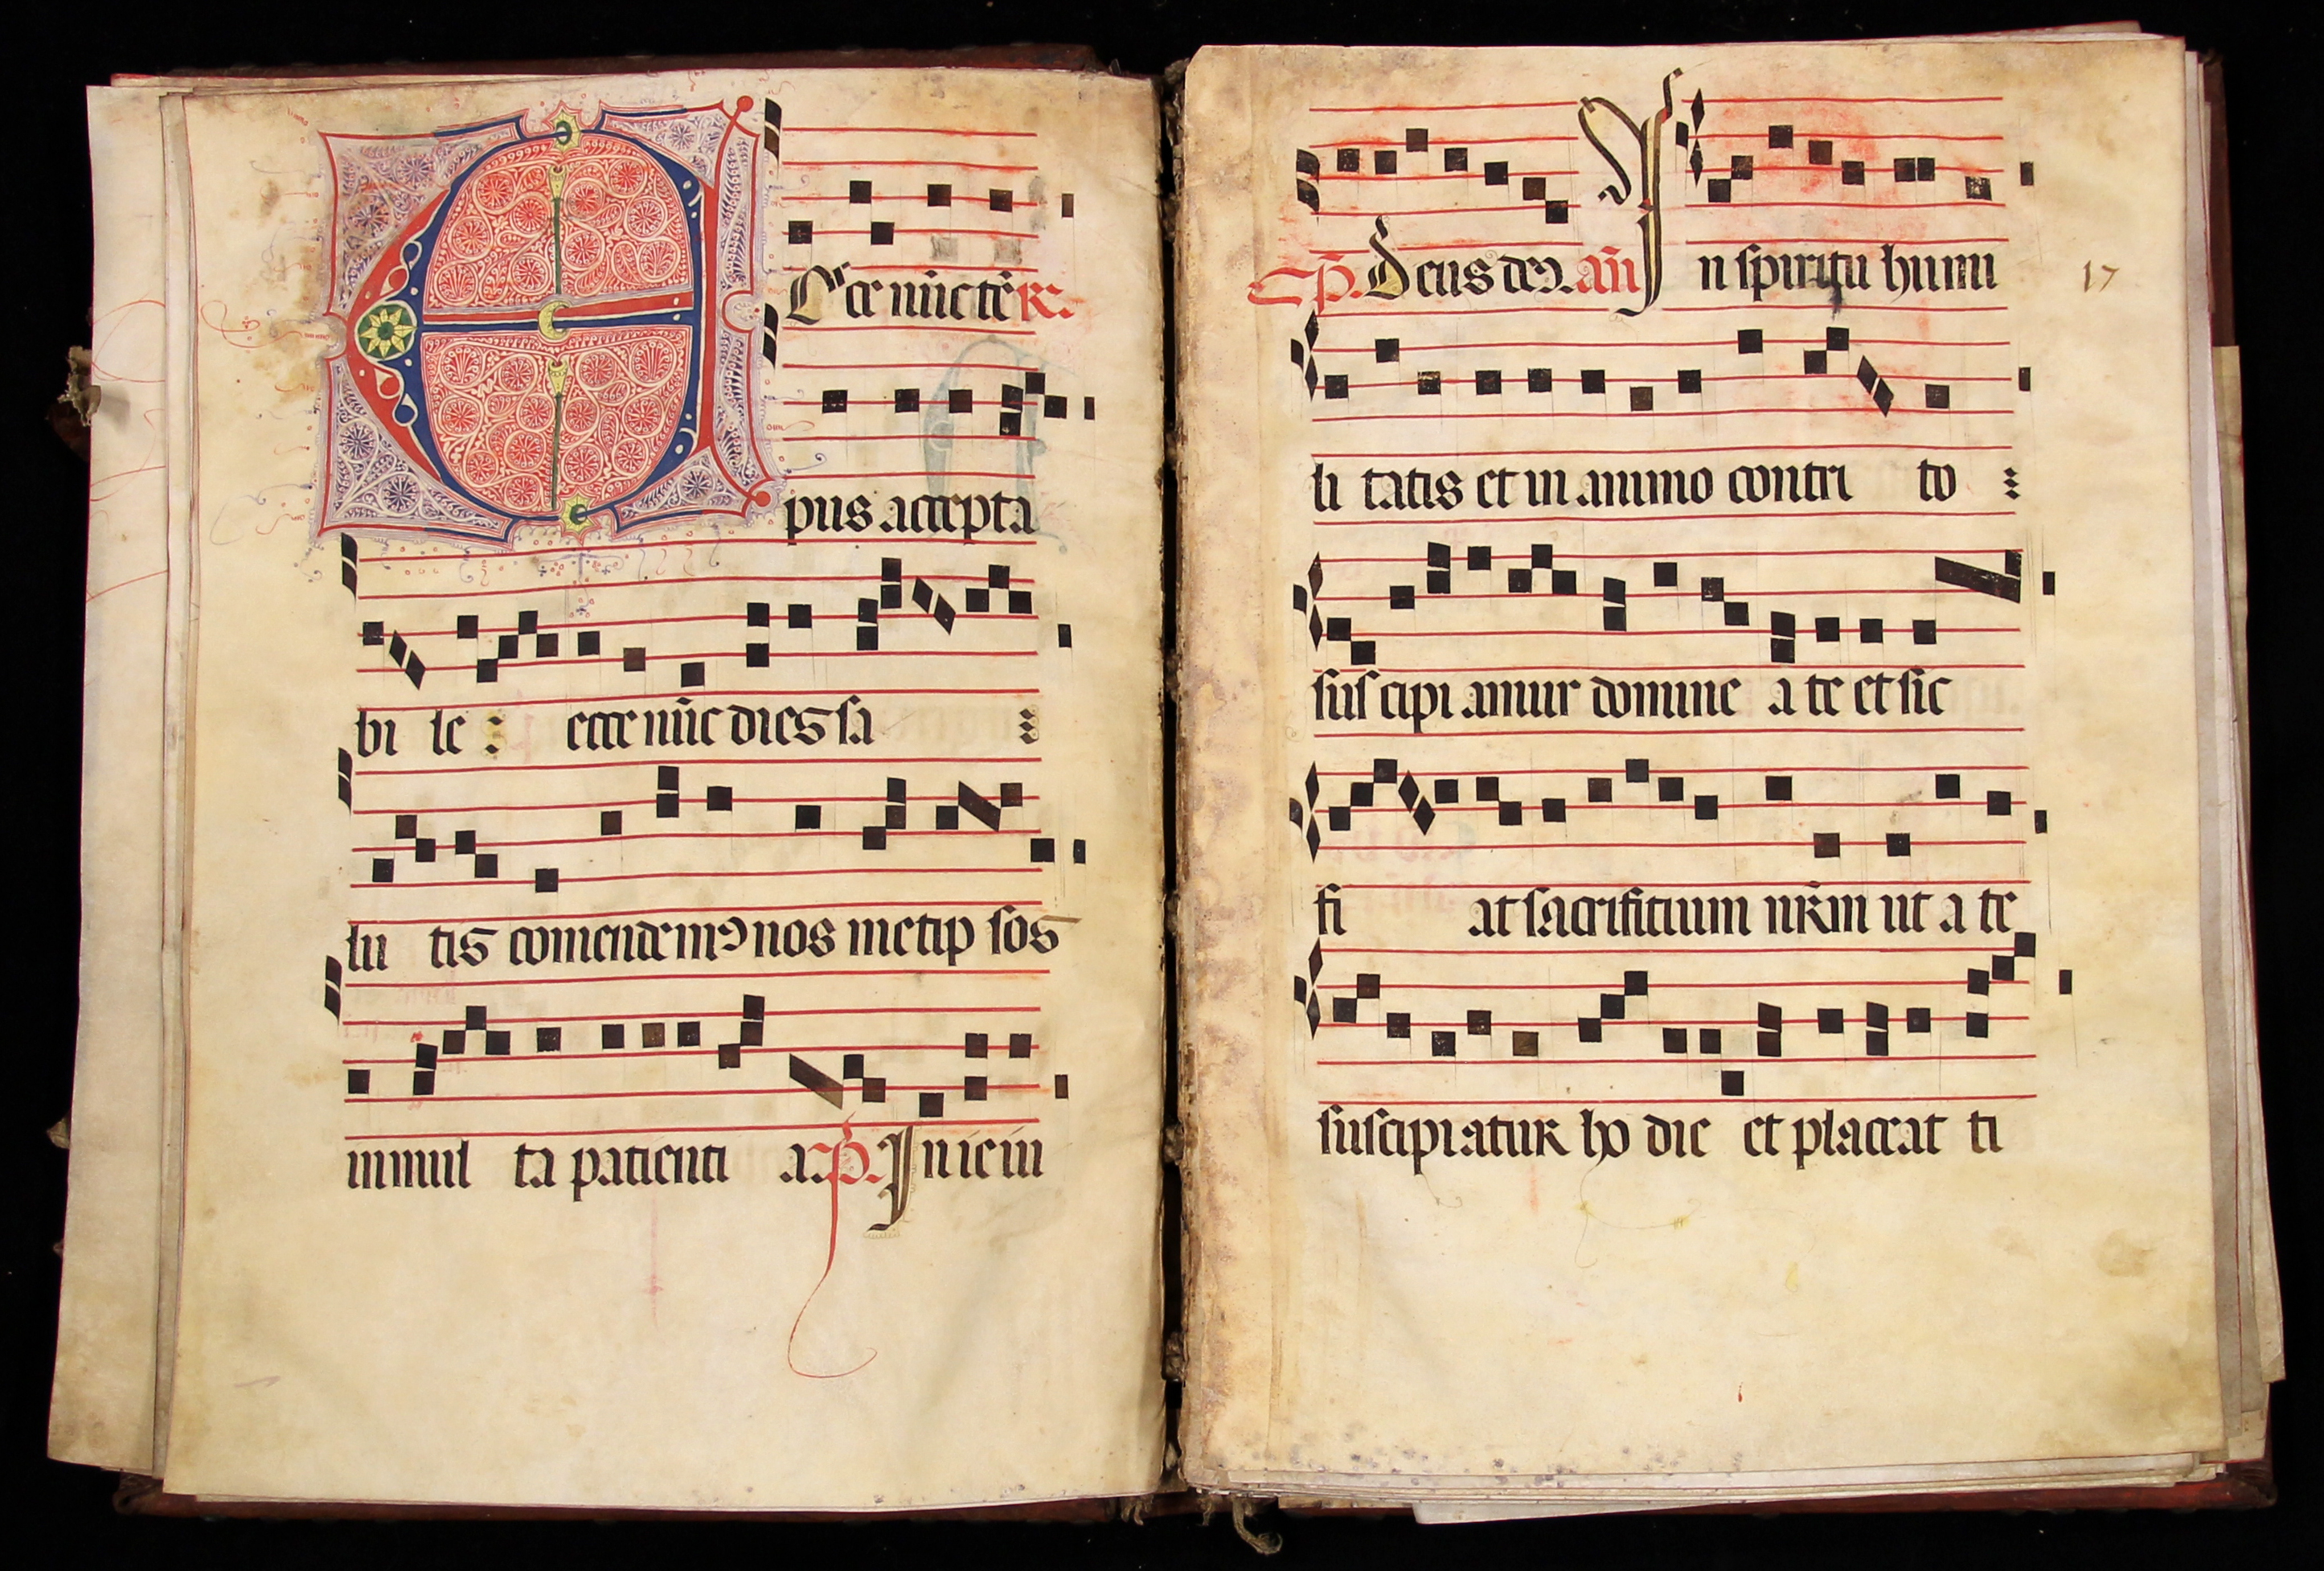 Ecce nūc tē℟.
pus accepta
bi le : ecce nūc dies sa :
lu tis comendemꝰ nos metip sos
in mul ta patienti a. p̄. In ieiu
p̄. Deus deꝰ. añ In spiritu humi
17
li tatis et in animo contri to :
sus cipi amur domine a te et sic
fi at sacrificium nr̄m ut a te
suscipiatur ho die et placeat ti